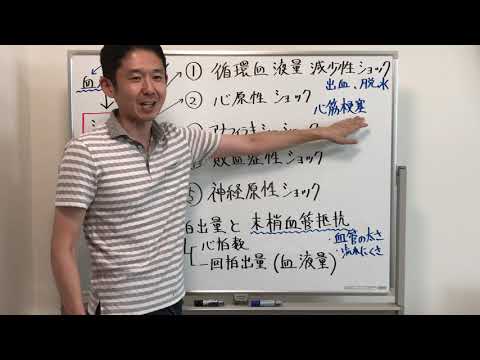 血
① 循環血液量減少性ショック
出血、脱水
② 心原性ショック
心筋梗塞
アナフィラキシーショック
敗血症性ショック
⑤ 神経原性ショック
拍出量と末梢血管抵抗
心拍数
一回拍出量(血液量)
・血管の太さ
・流れにくさ